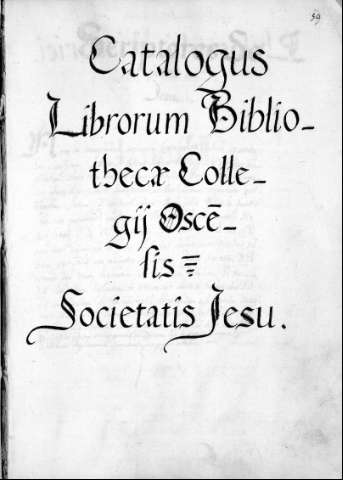 59
Catalogus
Librorum Biblio_
thecæ Colle_
gij Oscē_
sis
Societatis Jesu.